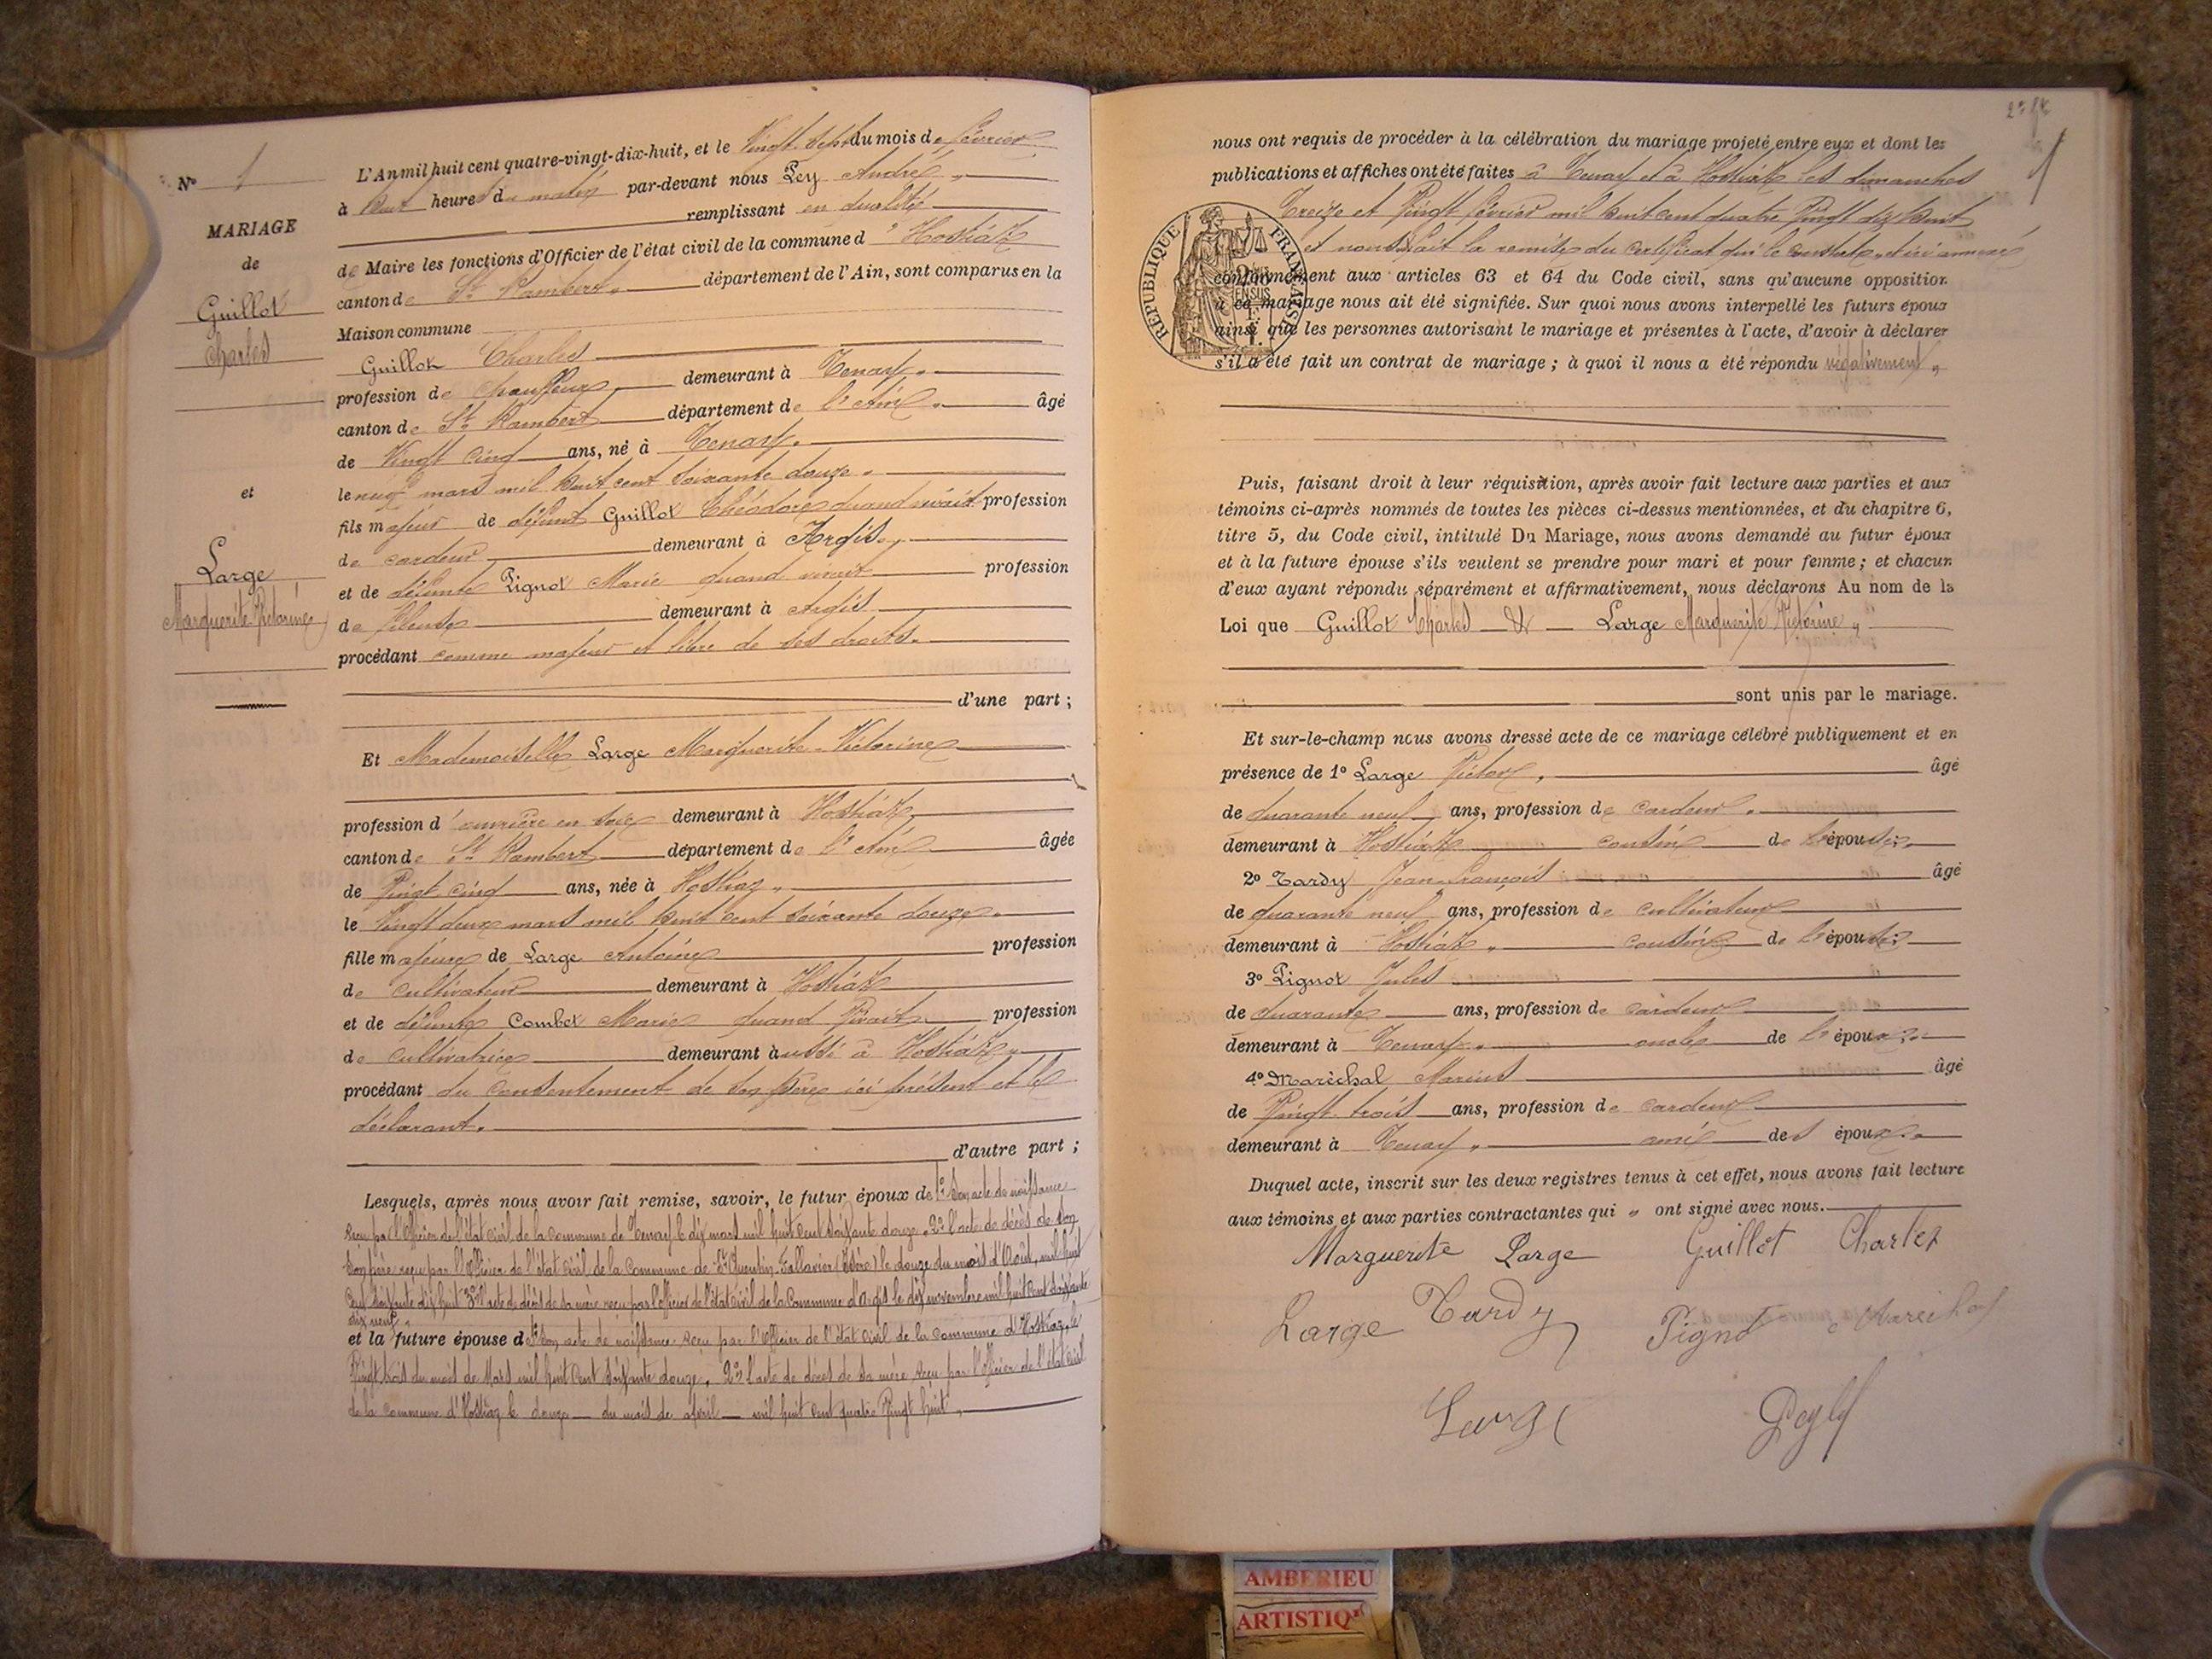 Nº 1
MARIAGE
de
Guillot
Charles
et
Large
Marguerite Victorine
L'An mil huit cent quatre-vingt-dix-huit, et le Vingt Sept du mois de février
à huit heures du matin par-devant nous Pey André
remplissant en qualité
de Maire les fonctions d'Officier de l'état civil de la commune d'Hostiaz
canton de St Rambert département de l'Ain, sont comparus en la
Maison commune
Guillot Charles
profession de chauffeur demeurant à Tenay
canton de St Rambert département de l'Ain âgé
de Vingt cinq ans, né à Tenay
le neuf mars mil huit cent soixante douze
fils majeur de défunt Guillot Théodore quand vivait profession
de cardeur demeurant à Argis
et de défunte Pignot Marie quand vivait profession
de fileuse demeurant à Argis
procédant comme majeur et libre de ses droits
d'une part ;
Et Mademoiselle Large Marguerite Victorine
profession d'ouvrière en soie demeurant à Hostiaz
canton de St Rambert département de l'Ain âgée
de Vingt cinq ans, née à Hostiaz
le Vingt deux mars mil huit cent soixante douze
fille majeure de Large Antoine profession
de cultivateur demeurant à Hostiaz
et de défunte Combet Marie quand Vivait profession
de cultivatrice demeurant aussi à Hostiaz
procédant du consentement de son père ici présent et le
déclarant.
d'autre part ;
Lesquels, après nous avoir fait remise, savoir, le futur époux de 1º Son acte de naissance
reçu par l'Officier de l'état civil de la commune de Tenay le dix mars mil huit cent soixante douze, 2º l'acte de décès de son
Son père reçu par l'Officier de l'état civil de la commune de St Quentin-Fallavier (Isère) le douze du mois d'Août, mil huit
cent soixante dix huit 3º l'acte de décès de sa mère reçu par l'officier de l'état civil de la commune d'Argis le dix novembre mil huit cent soixante
dix neuf
et la future épouse de 1º Son acte de naissance reçu par l'Officier de l'état civil de la commune d'Hostiaz, le
Vingt trois du mois de Mars mil huit cent soixante douze, 2º l'acte de décès de sa mère reçu par l'officier de l'état civil
de la commune d'Hostiaz le douze du mois de avril mil huit cent quatre Vingt huit
nous ont requis de procéder à la célébration du mariage projeté entre eux et dont les
publications et affiches ont été faites à Tenay et à Hostiaz les dimanches
Treize et Vingt février mil huit cent quatre Vingt dix huit
et nous fait la remise du certificat qui le constate, et ici annexé
RÉPUBLIQUE FRANÇAISE
conformément aux articles 63 et 64 du Code civil, sans qu'aucune opposition
à ce mariage nous ait été signifiée. Sur quoi nous avons interpellé les futurs époux
ainsi que les personnes autorisant le mariage et présentes à l'acte, d'avoir à déclarer
s'il a été fait un contrat de mariage ; à quoi il nous a été répondu négativement
Puis, faisant droit à leur réquisition, après avoir fait lecture aux parties et aux
témoins ci-après nommés de toutes les pièces ci-dessus mentionnées, et du chapitre 6,
titre 5, du Code civil, intitulé Du Mariage, nous avons demandé au futur époux
et à la future épouse s'ils veulent se prendre pour mari et pour femme ; et chacun
d'eux ayant répondu séparément et affirmativement, nous déclarons Au nom de la
Loi que Guillot Charles & Large Marguerite Victorine
sont unis par le mariage.
Et sur-le-champ nous avons dressé acte de ce mariage célébré publiquement et en
présence de 1º Large Victor âgé
de quarante neuf ans, profession de cardeur
demeurant à Hostiaz cousin de l'épouse
2º Tardy Jean François âgé
de quarante neuf ans, profession de cultivateur
demeurant à Hostiaz cousin de l'épouse
3º Pignot Jules
de quarante ans, profession de cardeur
demeurant à Tenay oncle de l'époux
4º Maréchal Marius âgé
de Vingt trois ans, profession de cardeur
demeurant à Tenay ami des époux
Duquel acte, inscrit sur les deux registres tenus à cet effet, nous avons fait lecture
aux témoins et aux parties contractantes qui ont signé avec nous.
Marguerite Large Guillot Charles
Large Tardy Pignot Marechal
Large
AMBERIEU
ARTISTIQ